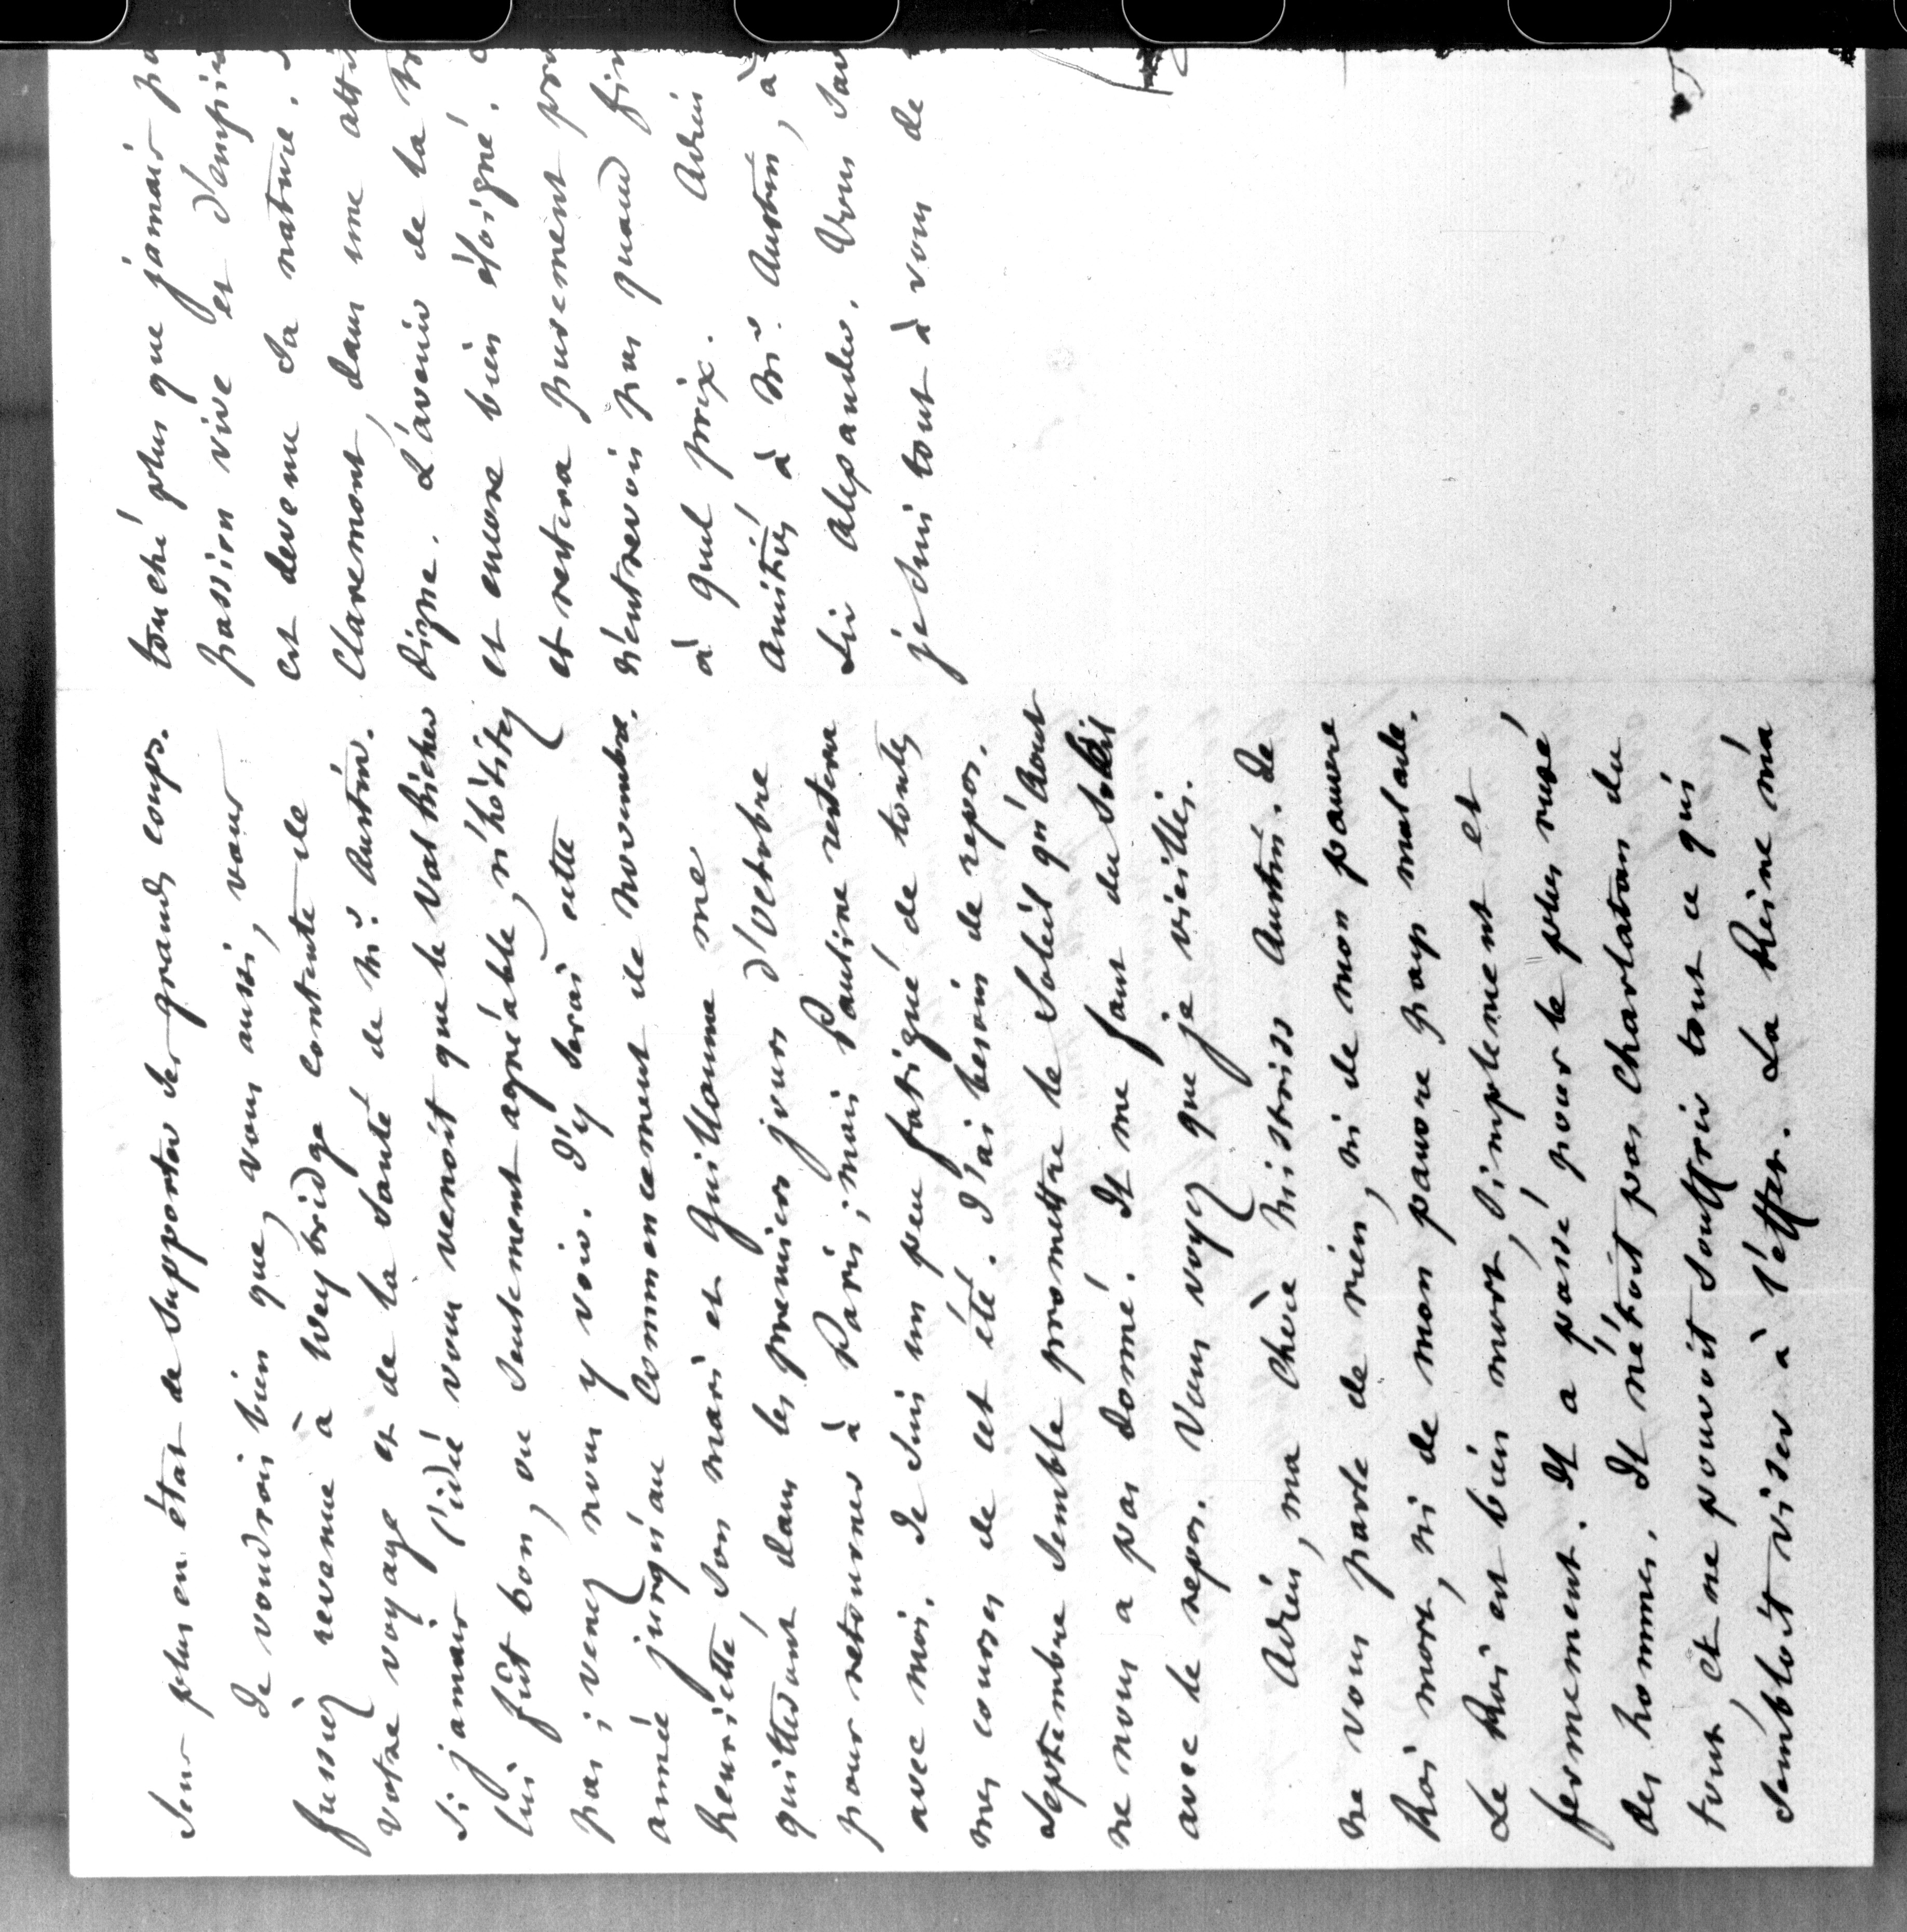 sens plus en état de supporter de grands coups.
Je voudrois bien que, vous aussi, vous
fussiez revenue à Weybridge contente de
votre voyage et de la santé de Mr. Austin.
Si jamais l'idée vous venoit que le Val Richer
lui fût bon, ou seulement agréable, n'hésitez
pas; venez nous y voir. J'y serai cette
année jusqu'au commencement de novembre.
Henriette, son mari et Guillaume me
quitteront dans les premiers jours d'octobre
pour retourner à Paris; mais Pauline restera
avec moi. Je suis un peu fatigué de toutes
mes courses de cet été. J'ai besoin de repos.
Septembre semble promettre le Soleil qu'Aout
ne nous a pas donné. Il me faut du Soleil
avec le repos. Vous voyez que je vieillis.
Adieu, ma chère Mistriss Austin. Je
ne vous parle de rien, ni de mon pauvre
Roi mort, ni de mon pauvre pays malade.
Le Roi est bien mort, simplement et
fermement. Il a passé pour le plus rusé
des hommes. Il n'étoit pas charlatan du
tout, et ne pouvoit souffrir tout ce qui
sembloit viser à l'effet. La Reine m'a
touché plus que jamais
passion vive et
est devenu sa nature.
Claremont, dans une
digne. L'avenir de la
et encore bien éloigné.
et restera purement
n'entrevois pas quand
à quel prix. Adieu
amitiés à Mr. Austin, à
Sir Alexander. Vous
je suis tout à vous de